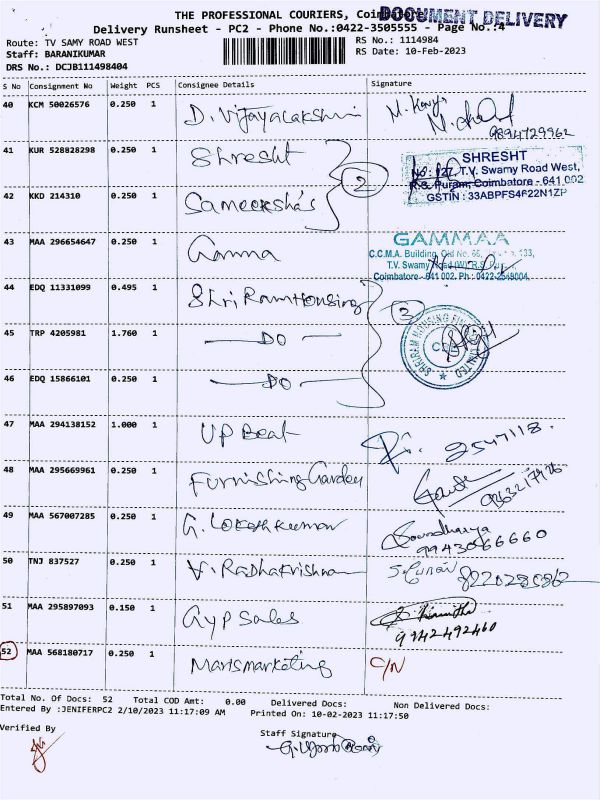 THE PROFESSIONAL COURIERS, Coimbatore
DOCUMENT DELIVERY
Delivery Runsheet - PC2 - Phone No.:0422-3505555 - Page No.:4
Route: TV SAMY ROAD WEST
RS No.: 1114984
Staff: BARANIKUMAR
RS Date: 10-Feb-2023
DRS No.: DCJB111498404
S No Consignment No Weight PCS Consignee Details Signature
40 KCM 50026576 0.250 1 D. Vijayalakshmi
9894729962
41 KUR 528828298 0.250 1 Shresht
SHRESHT
No : 127, T.V. Swamy Road West,
R.S. Puram, Coimbatore - 641 002
GSTIN : 33ABPFS4F22N1ZP
2
42 KKD 214310 0.250 1 Sameeksha's
43 MAA 296654647 0.250 1 Gamma
GAMMAA
C.C.M.A. Building, Old No. 66, 133,
T.V. Swamy Road (W), R.S. Puram,
Coimbatore - 641 002. Ph : 0422-2549004.
44 EDQ 11331099 0.495 1 Shri Ram Housing
3
SHRIRAM HOUSING FINANCE LIMITED
45 TRP 4205981 1.760 1 DO
46 EDQ 15866101 0.250 1 DO
47 MAA 294138152 1.000 1 UP Beat 2547118.
48 MAA 295669961 0.250 1 Furnishing Garden
49 MAA 567007285 0.250 1 G. Lokesh kumar Soundharya
9943066660
50 TNJ 837527 0.250 1 V. Radhakrishnan
51 MAA 295897093 0.150 1 Gyp Sales
9942492460
52 MAA 568180717 0.250 1 Martsmarketing C/N
Total No. Of Docs: 52 Total COD Amt: 0.00 Delivered Docs: Non Delivered Docs:
Entered By :JENIFERPC2 2/10/2023 11:17:09 AM Printed On: 10-02-2023 11:17:50
Verified By
Staff Signature